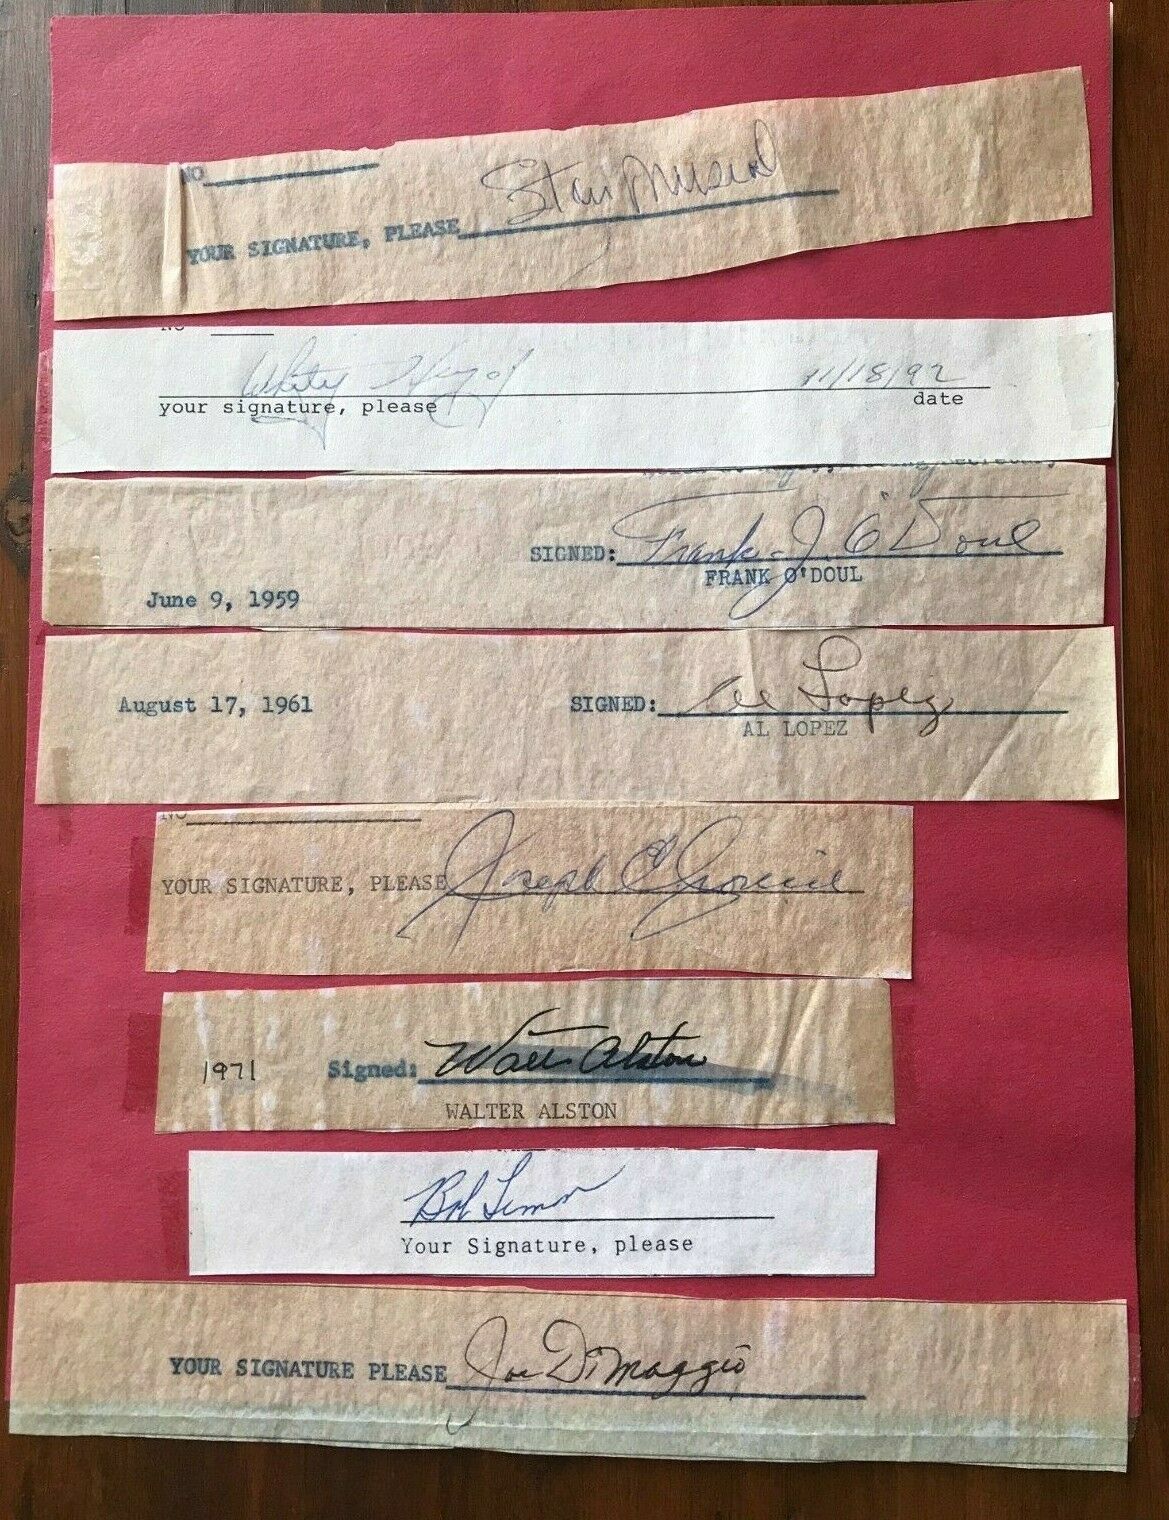 NO
Stan Musial
YOUR SIGNATURE, PLEASE
NO
Whitey Herzog 11/18/92
your signature, please date
SIGNED: Frank J. "O'Doul
FRANK O'DOUL
June 9, 1959
August 17, 1961 SIGNED: Al Lopez
AL LOPEZ
NO
YOUR SIGNATURE, PLEASE Joseph E Cronin
1971 Signed: Walt Alston
WALTER ALSTON
Bob Lemon
Your Signature, please
YOUR SIGNATURE PLEASE Joe DiMaggio